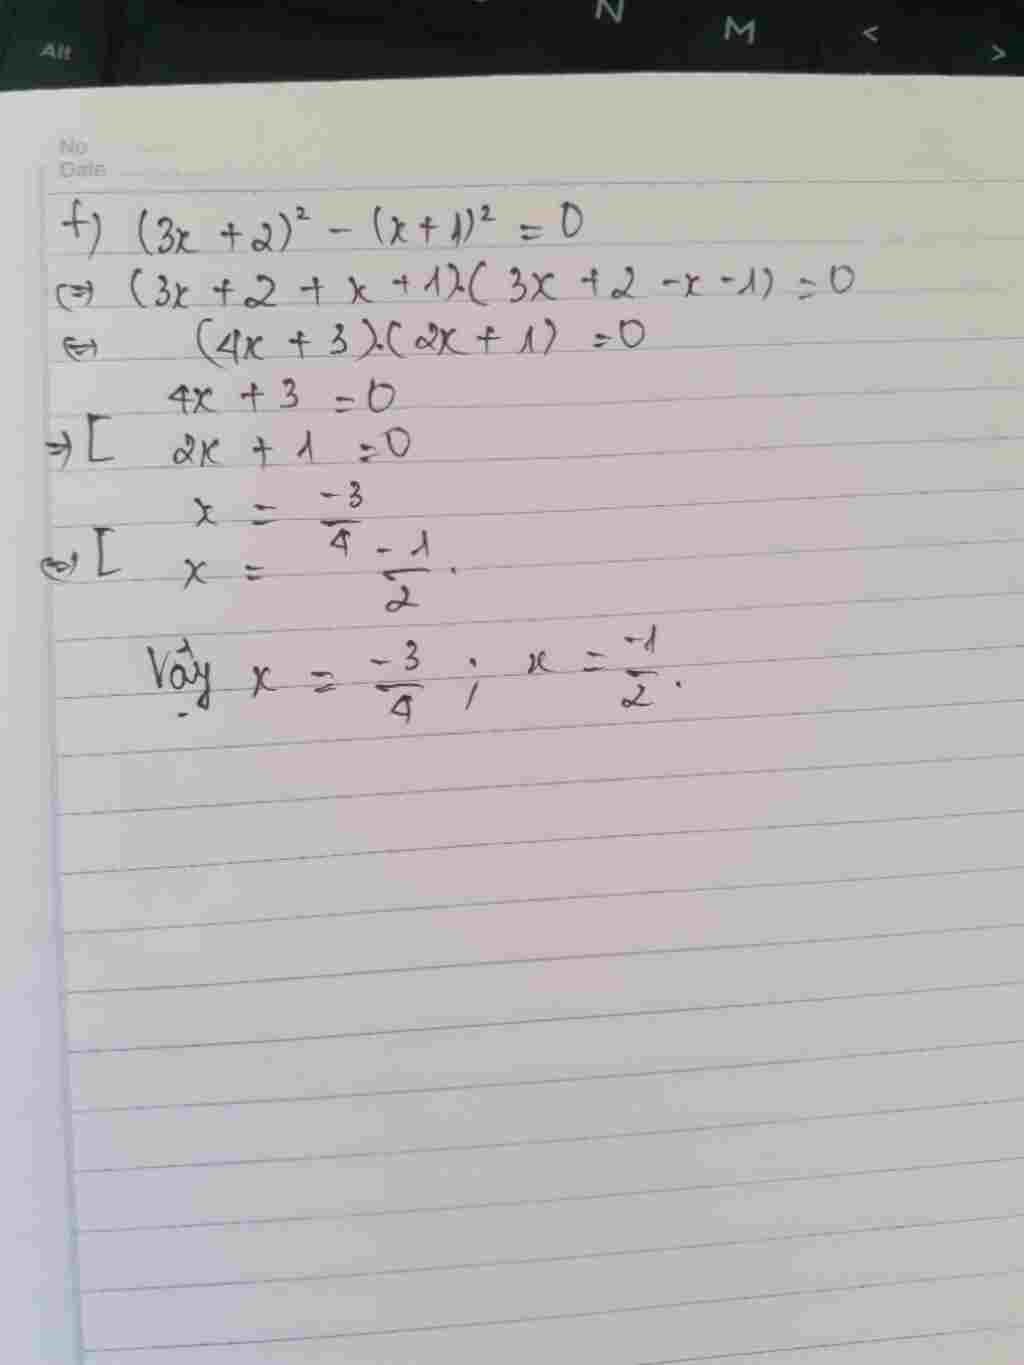 Alt N M < >
No
Date
f) (3x + 2)² - (x + 1)² = 0
⇔ (3x + 2 + x + 1).( 3x + 2 - x - 1) = 0
⇔ (4x + 3).( 2x + 1) = 0
4x + 3 = 0
⇒ [ 2x + 1 = 0
x = -3/4
⇔ [ x = -1/2 .
Vậy x = -3/4 ; x = -1/2 .